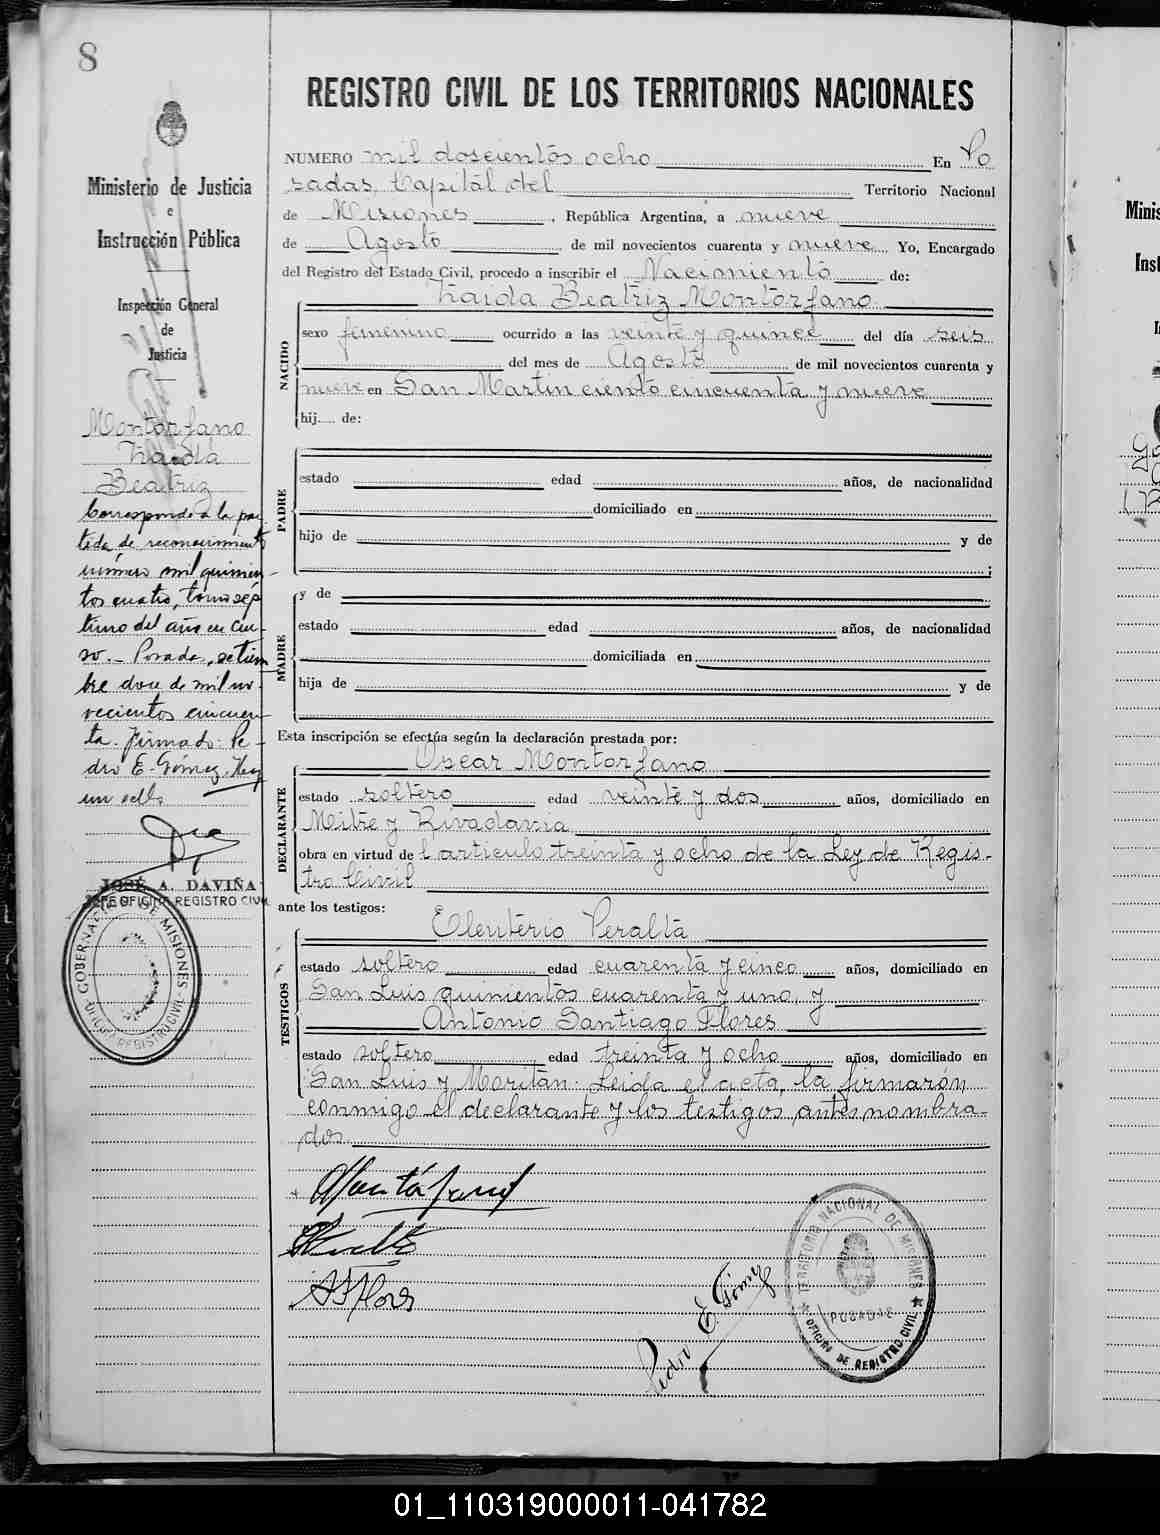 8
Ministerio de Justicia
e
Instrucción Pública
Inspección General
de
Justicia
Montórfano
Zaida
Beatriz
Corresponde a la par
tida de reconocimiento
número mil quinien
tos cuatro, tomo sép
timo del año en cur-
so.- Posadas, setiem
bre doce de mil no
vecientos cincuen
ta. Firmado: Pe-
dro E. Gómez. Hay
un sello
JOSÉ A. DAVIÑA
JEFE OFICINA REGISTRO CIVIL
GOBERNACIÓN DE MISIONES
OFICINA REGISTRO CIVIL
REGISTRO CIVIL DE LOS TERRITORIOS NACIONALES
NUMERO mil doscientos ocho En Po
sadas, Capital del Territorio Nacional
de Misiones, República Argentina, a nueve
de Agosto de mil novecientos cuarenta y nueve Yo, Encargado
del Registro del Estado Civil, procedo a inscribir el Nacimiento de:
Zaida Beatriz Montórfano
NACIDO
sexo femenino ocurrido a las veinte y quince del día seis
del mes de Agosto de mil novecientos cuarenta y
nueve en San Martín ciento cincuenta y nueve
hij.... de:
PADRE
estado edad años, de nacionalidad
domiciliado en
hijo de y de
;
MADRE
y de
estado edad años, de nacionalidad
domiciliada en
hija de y de
Esta inscripción se efectúa según la declaración prestada por:
DECLARANTE
Oscar Montórfano
estado soltero edad veinte y dos años, domiciliado en
Mitre y Rivadavia
obra en virtud de l artículo treinta y ocho de la Ley de Regis-
tro Civil
ante los testigos:
TESTIGOS
Elenterio Peralta
estado soltero edad cuarenta y cinco años, domiciliado en
San Luis quinientos cuarenta y uno, y
Antonio Santiago Flores
estado soltero edad treinta y ocho años, domiciliado en
San Luis y Moritán. Leída el acta, la firmarón
conmigo el declarante y los testigos antes nombra-
dos.
A S Flores
Pedro E. Gómez
TERRITORIO NACIONAL DE MISIONES
POSADAS
OFICINA DE REGISTRO CIVIL
01_110319000011-041782